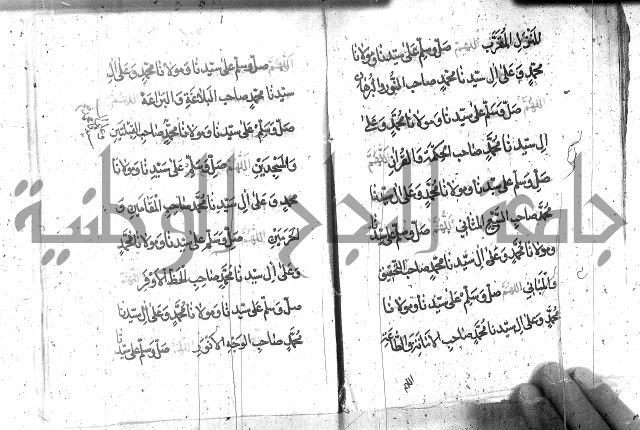 المقرب اللهم صل وسلم على سيدنا ومولانا
محمد وعلى ال سيدنا محمد صاحب النور والبرهان
اللهم صل وسلم على سيدنا ومولانا محمد وعلى
ال سيدنا محمد صاحب الحكمة والقران اللهم
صل وسلم على سيدنا ومولانا محمد وعلى ال سيدنا
محمد صاحب السبع المثاني اللهم صل وسلم على سيدنا
ومولانا محمد وعلى ال سيدنا محمد صاحب التحقيق
والمباني اللهم صل وسلم على سيدنا ومولانا
محمد وعلى ال سيدنا محمد صاحب والطاعة
اللهم
اللهم صل وسلم على سيدنا ومولانا محمد وعلى ال
سيدنا محمد صاحب البلاغة والبراعة اللهم
صل وسلم على سيدنا ومولانا محمد صاحب القبلتين
والمسجدين اللهم صل وسلم على سيدنا ومولانا
محمد وعلى ال سيدنا محمد صاحب المقامين و
لحرمين اللهم صل وسلم على سيدنا ومولانا محمد
وعلى ال سيدنا محمد صاحب الحظ الاوفر اللهم
صل وسلم على سيدنا ومولانا محمد وعلى ال سيدنا
محمد صاحب الوجه الانور اللهم صل وسلم على سيدنا
جامعة النجاح الوطنية